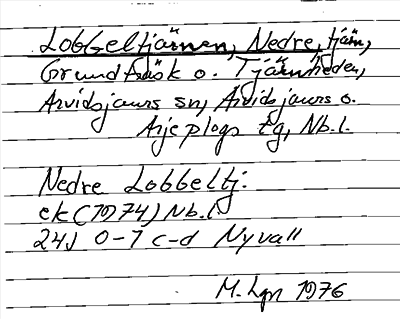 Lobbeltjärnen, Nedre, tjärn,
Grundträsk o. Tjärnheden,
Arvidsjaurs sn, Arvidsjaurs o.
Arjeplogs tg, Nb.l.
Nedre Lobbeltj:
ek (1974) Nb.l
24J 0-1 c-d Nyvall
M. Lgn 1976